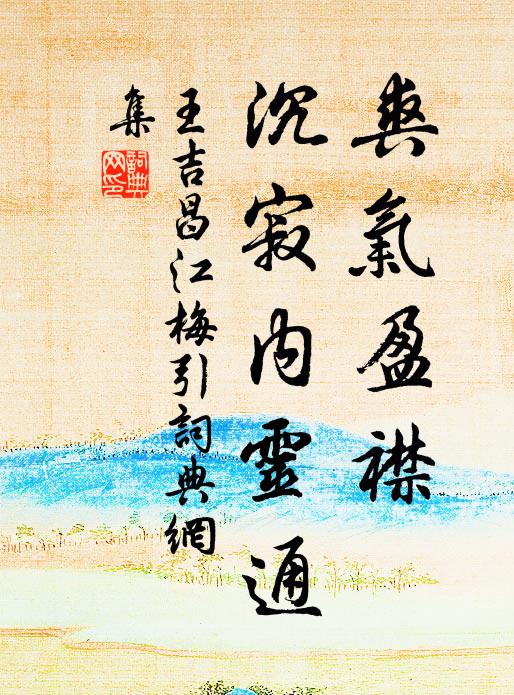 爽氣盈襟
沉寂內靈通
王吉昌江梅引詞典網
集
詞典网印